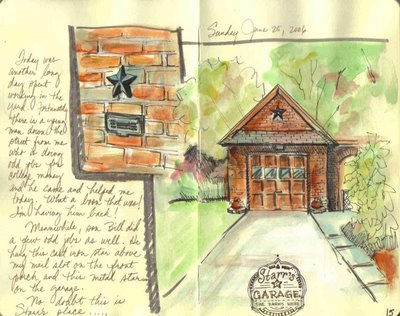 Sunday June 25, 2006
Today was
another long
day spent
working in the
yard. Fortunately
there is a young
man down the
street from me
who is doing
odd jobs for
college money
and he came and helped me
today. What a boon that was!
I'm having him back!
Meanwhile, son Bill did
a few odd jobs as well. He
hung this cast iron star above
my mail slot on the front
porch, and this metal star
on the garage.
No doubt this is
Starr's place.....
Starr's
GARAGE
15